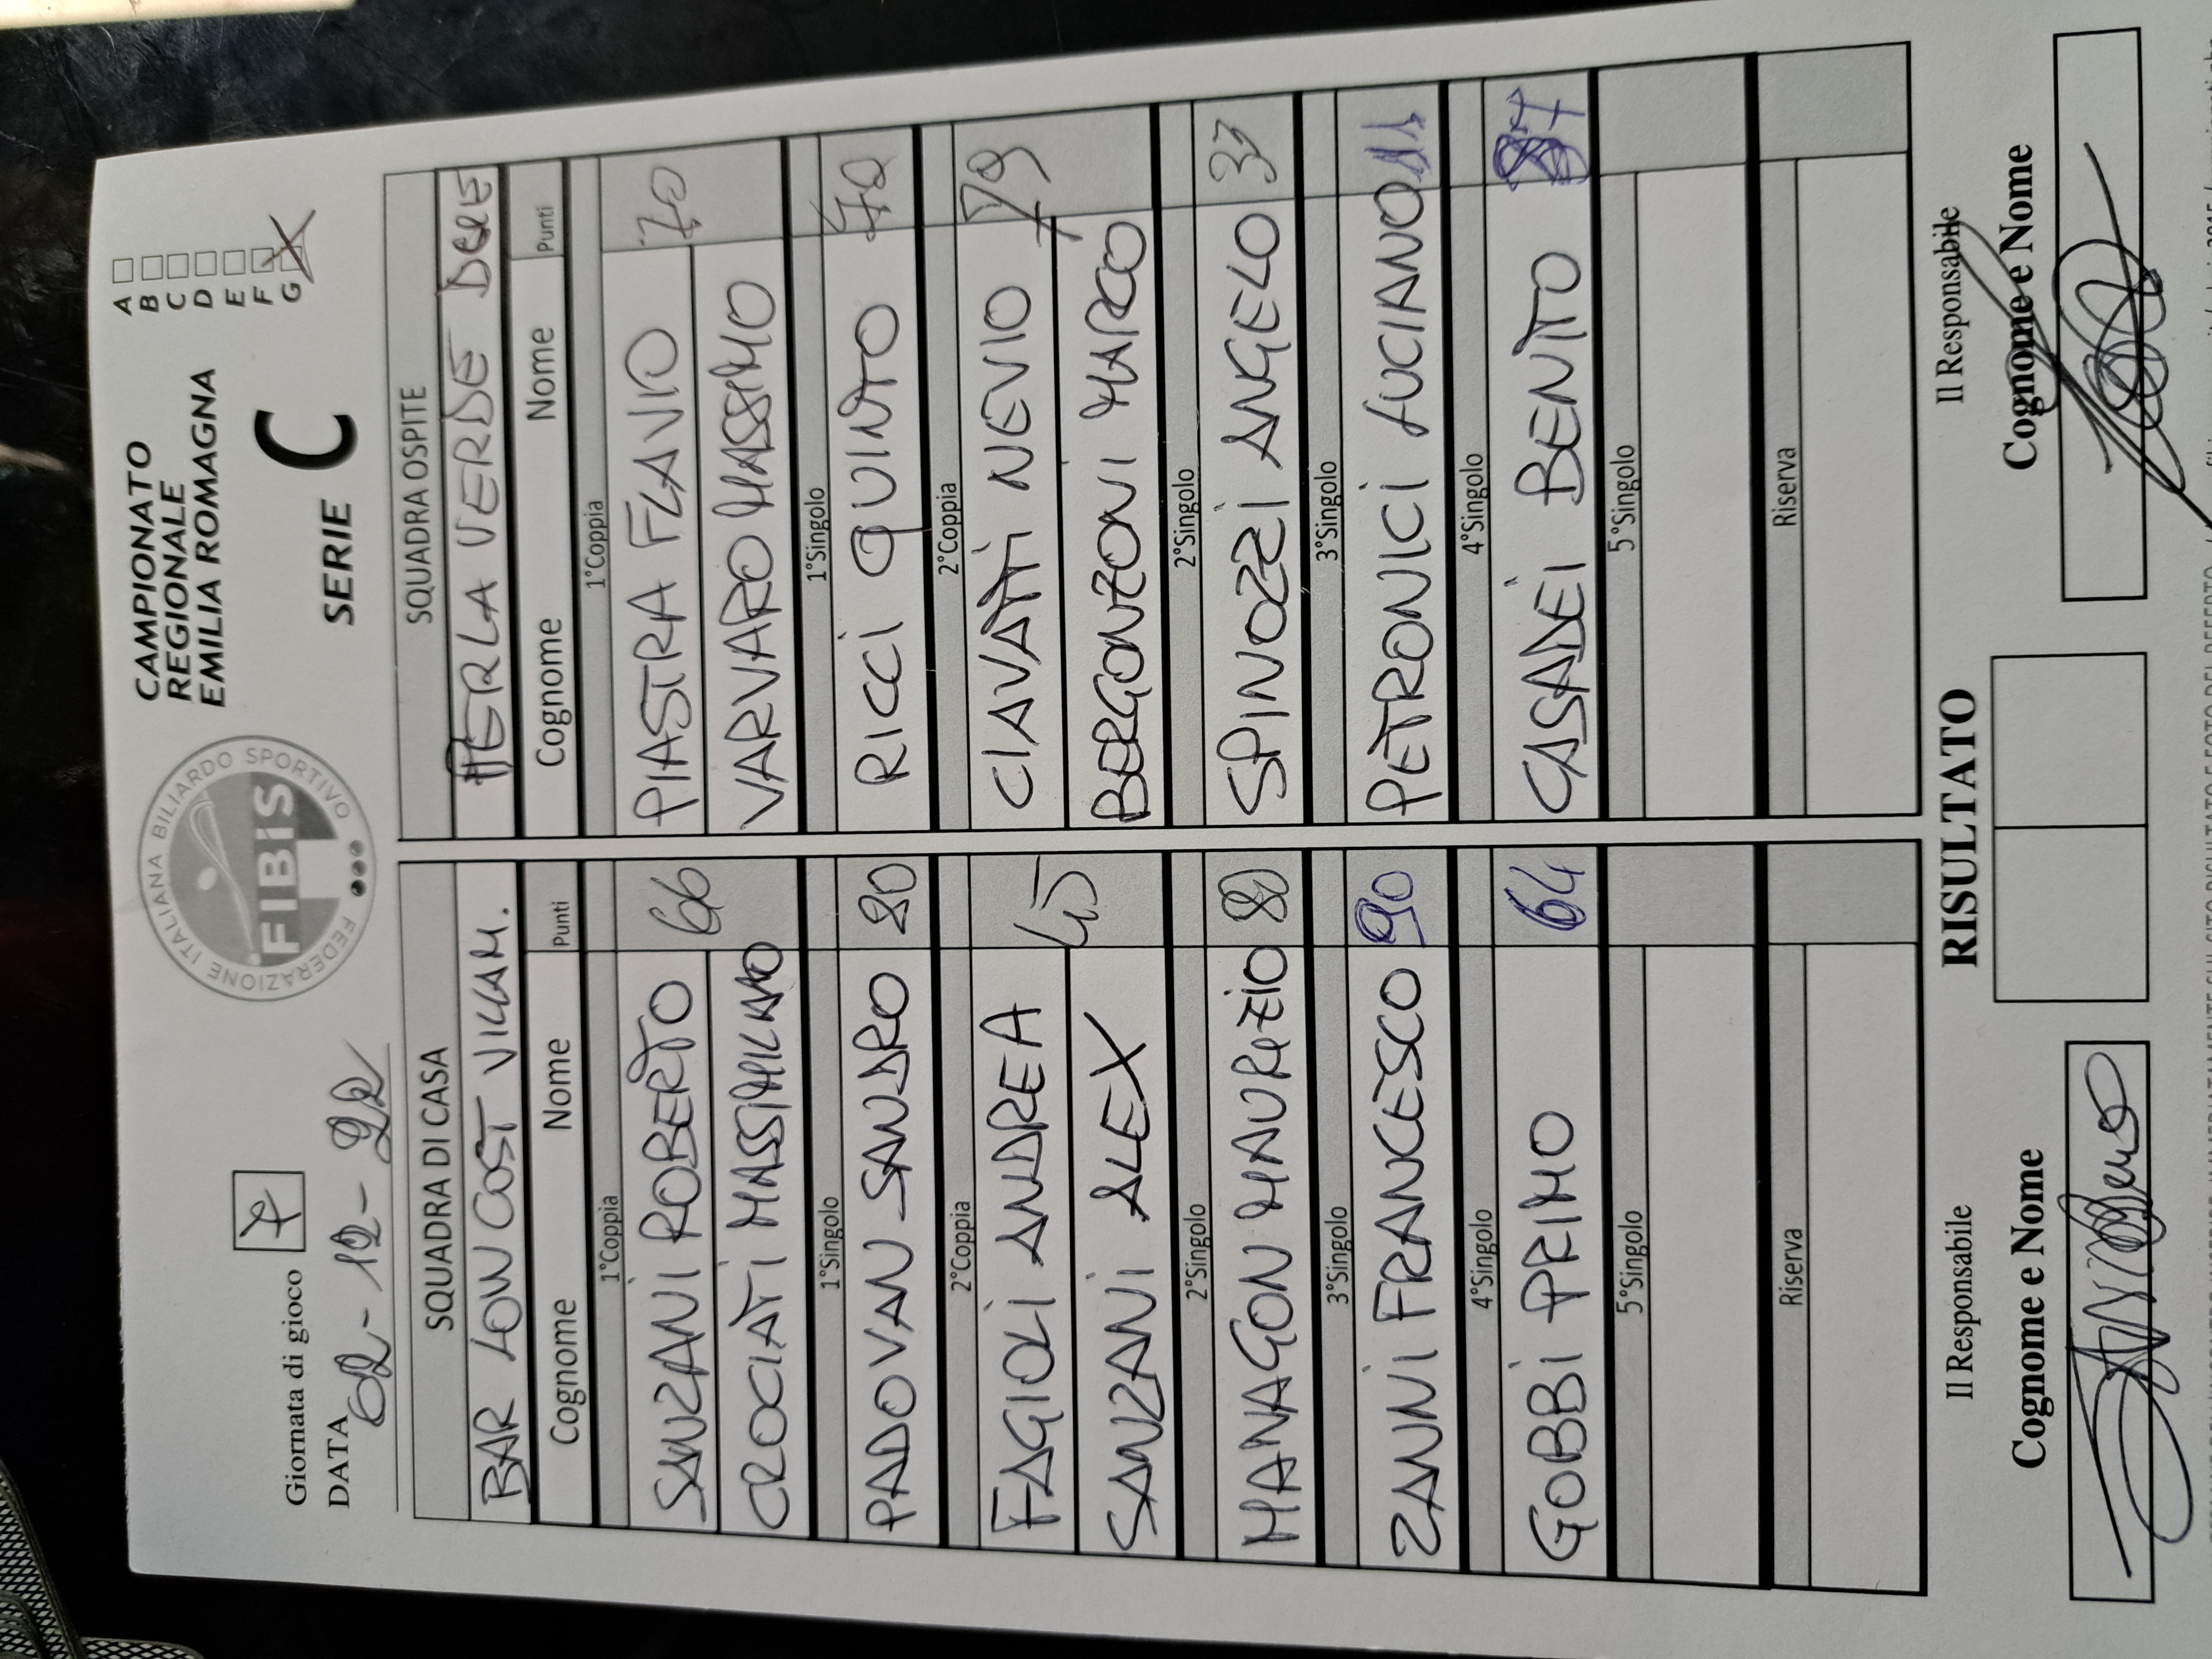 Giornata di gioco 7
DATA 02-12-22
FEDERAZIONE ITALIANA BILIARDO SPORTIVO
FIBiS
CAMPIONATO
REGIONALE
EMILIA ROMAGNA
SERIE C
A
B
C
D
E
F
G X
SQUADRA DI CASA
BAR LOW COST VILLAM.
Cognome Nome Punti
1°Coppia
SANZANI ROBERTO 66
CROCIATI MASSIMILIANO
1°Singolo
PADOVAN SANDRO 80
2°Coppia
FAGIOLI ANDREA 45
SANZANI ALEX
2°Singolo
MANAGON MAURIZIO 80
3°Singolo
ZANNI FRANCESCO 90
4°Singolo
GOBBI PRIMO 64
5°Singolo
Riserva
SQUADRA OSPITE
PERLA VERDE
Cognome Nome Punti
1°Coppia
PIASTRA FLAVIO 70
VARVARO MASSIMO
1°Singolo
RICCI QUINTO
2°Coppia
CIAVATTI NEVIO 79
BERGONZONI MARCO
2°Singolo
SPINOZZI ANGELO
3°Singolo
PETRONICI LUCIANO
4°Singolo
CASADEI BENITO
5°Singolo
Riserva
RISULTATO
Il Responsabile
Cognome e Nome
Il Responsabile
Cognome e Nome